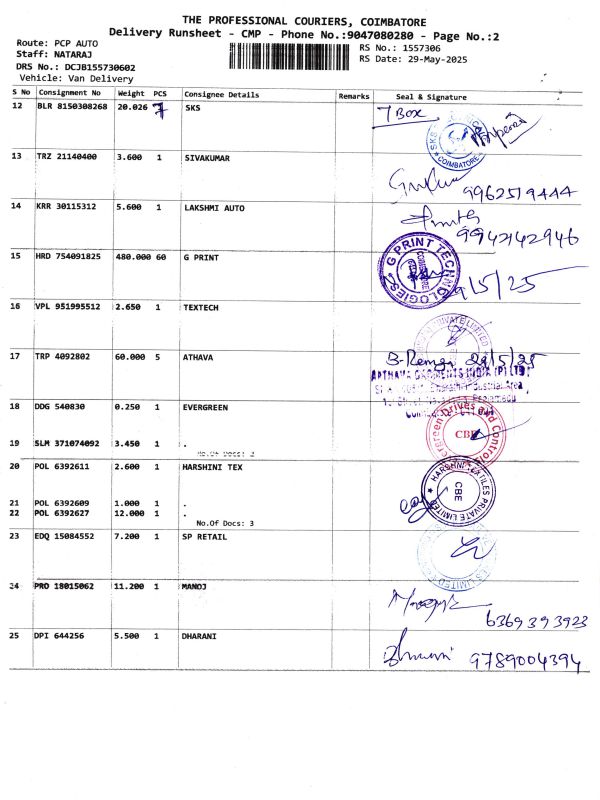 THE PROFESSIONAL COURIERS, COIMBATORE
Delivery Runsheet - CMP - Phone No.:9047080280 - Page No.:2
Route: PCP AUTO
Staff: NATARAJ
DRS No.: DCJB155730602
Vehicle: Van Delivery
RS No.: 1557306
RS Date: 29-May-2025
S No Consignment No Weight PCS Consignee Details Remarks Seal & Signature
12 BLR 8150308268 20.026 7 SKS 7 Box
SKS COIMBATORE
13 TRZ 21140400 3.600 1 SIVAKUMAR
9962519444
14 KRR 30115312 5.600 1 LAKSHMI AUTO
9942142946
15 HRD 754091825 480.000 60 G PRINT
G PRINT TECHNOLOGIES
COIMBATORE
9/5/25
16 VPL 951995512 2.650 1 TEXTECH
PRIVATE LIMITED
17 TRP 4092802 60.000 5 ATHAVA
29/5/25
GARMENTS INDIA (P) LTD
Industrial Area
18 DDG 540830 0.250 1 EVERGREEN
Evergreen Drives and Controls
CBE
19 SLM 371074092 3.450 1 .
No.Of Docs: 2
20 POL 6392611 2.600 1 HARSHINI TEX
HARSHNI TEXTILES PRIVATE LIMITED
CBE
21 POL 6392609 1.000 1 .
22 POL 6392627 12.000 1 .
No.Of Docs: 3
23 EDQ 15084552 7.200 1 SP RETAIL
24 PRO 18015062 11.200 1 MANOJ
6369393923
25 DPI 644256 5.500 1 DHARANI
9789004394